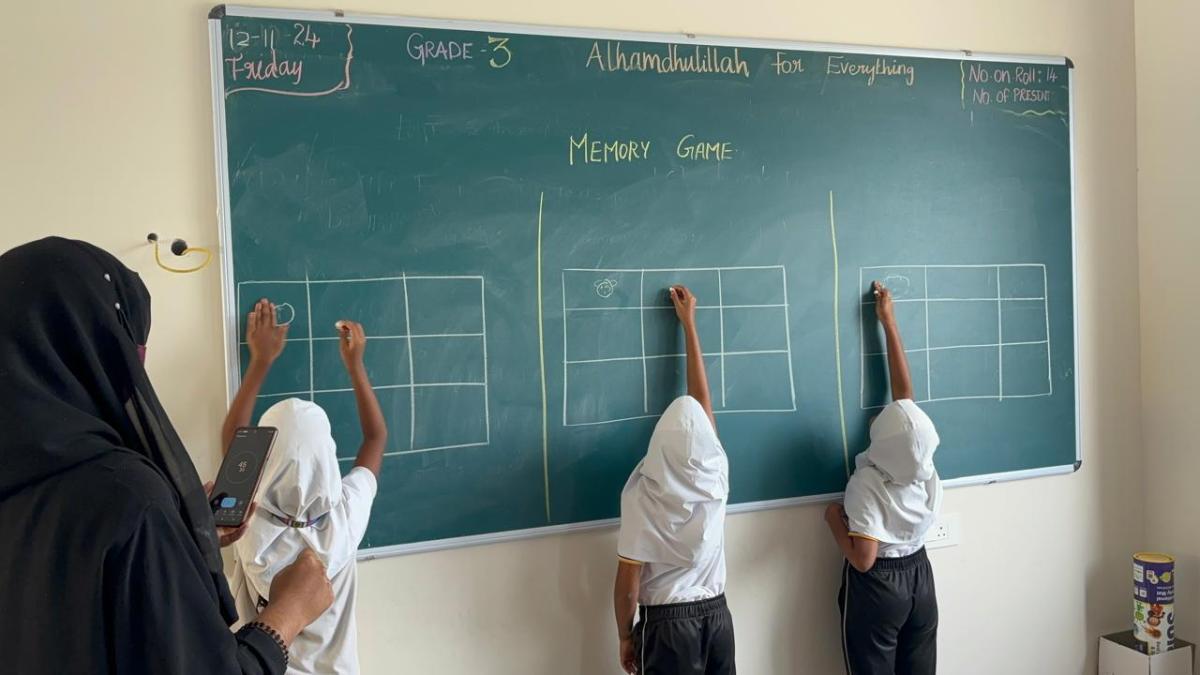 12-11-24
Friday
GRADE-3
Alhamdhulillah for Everything
No. on Roll: 14
No. of PRESENT:
MEMORY GAME
45